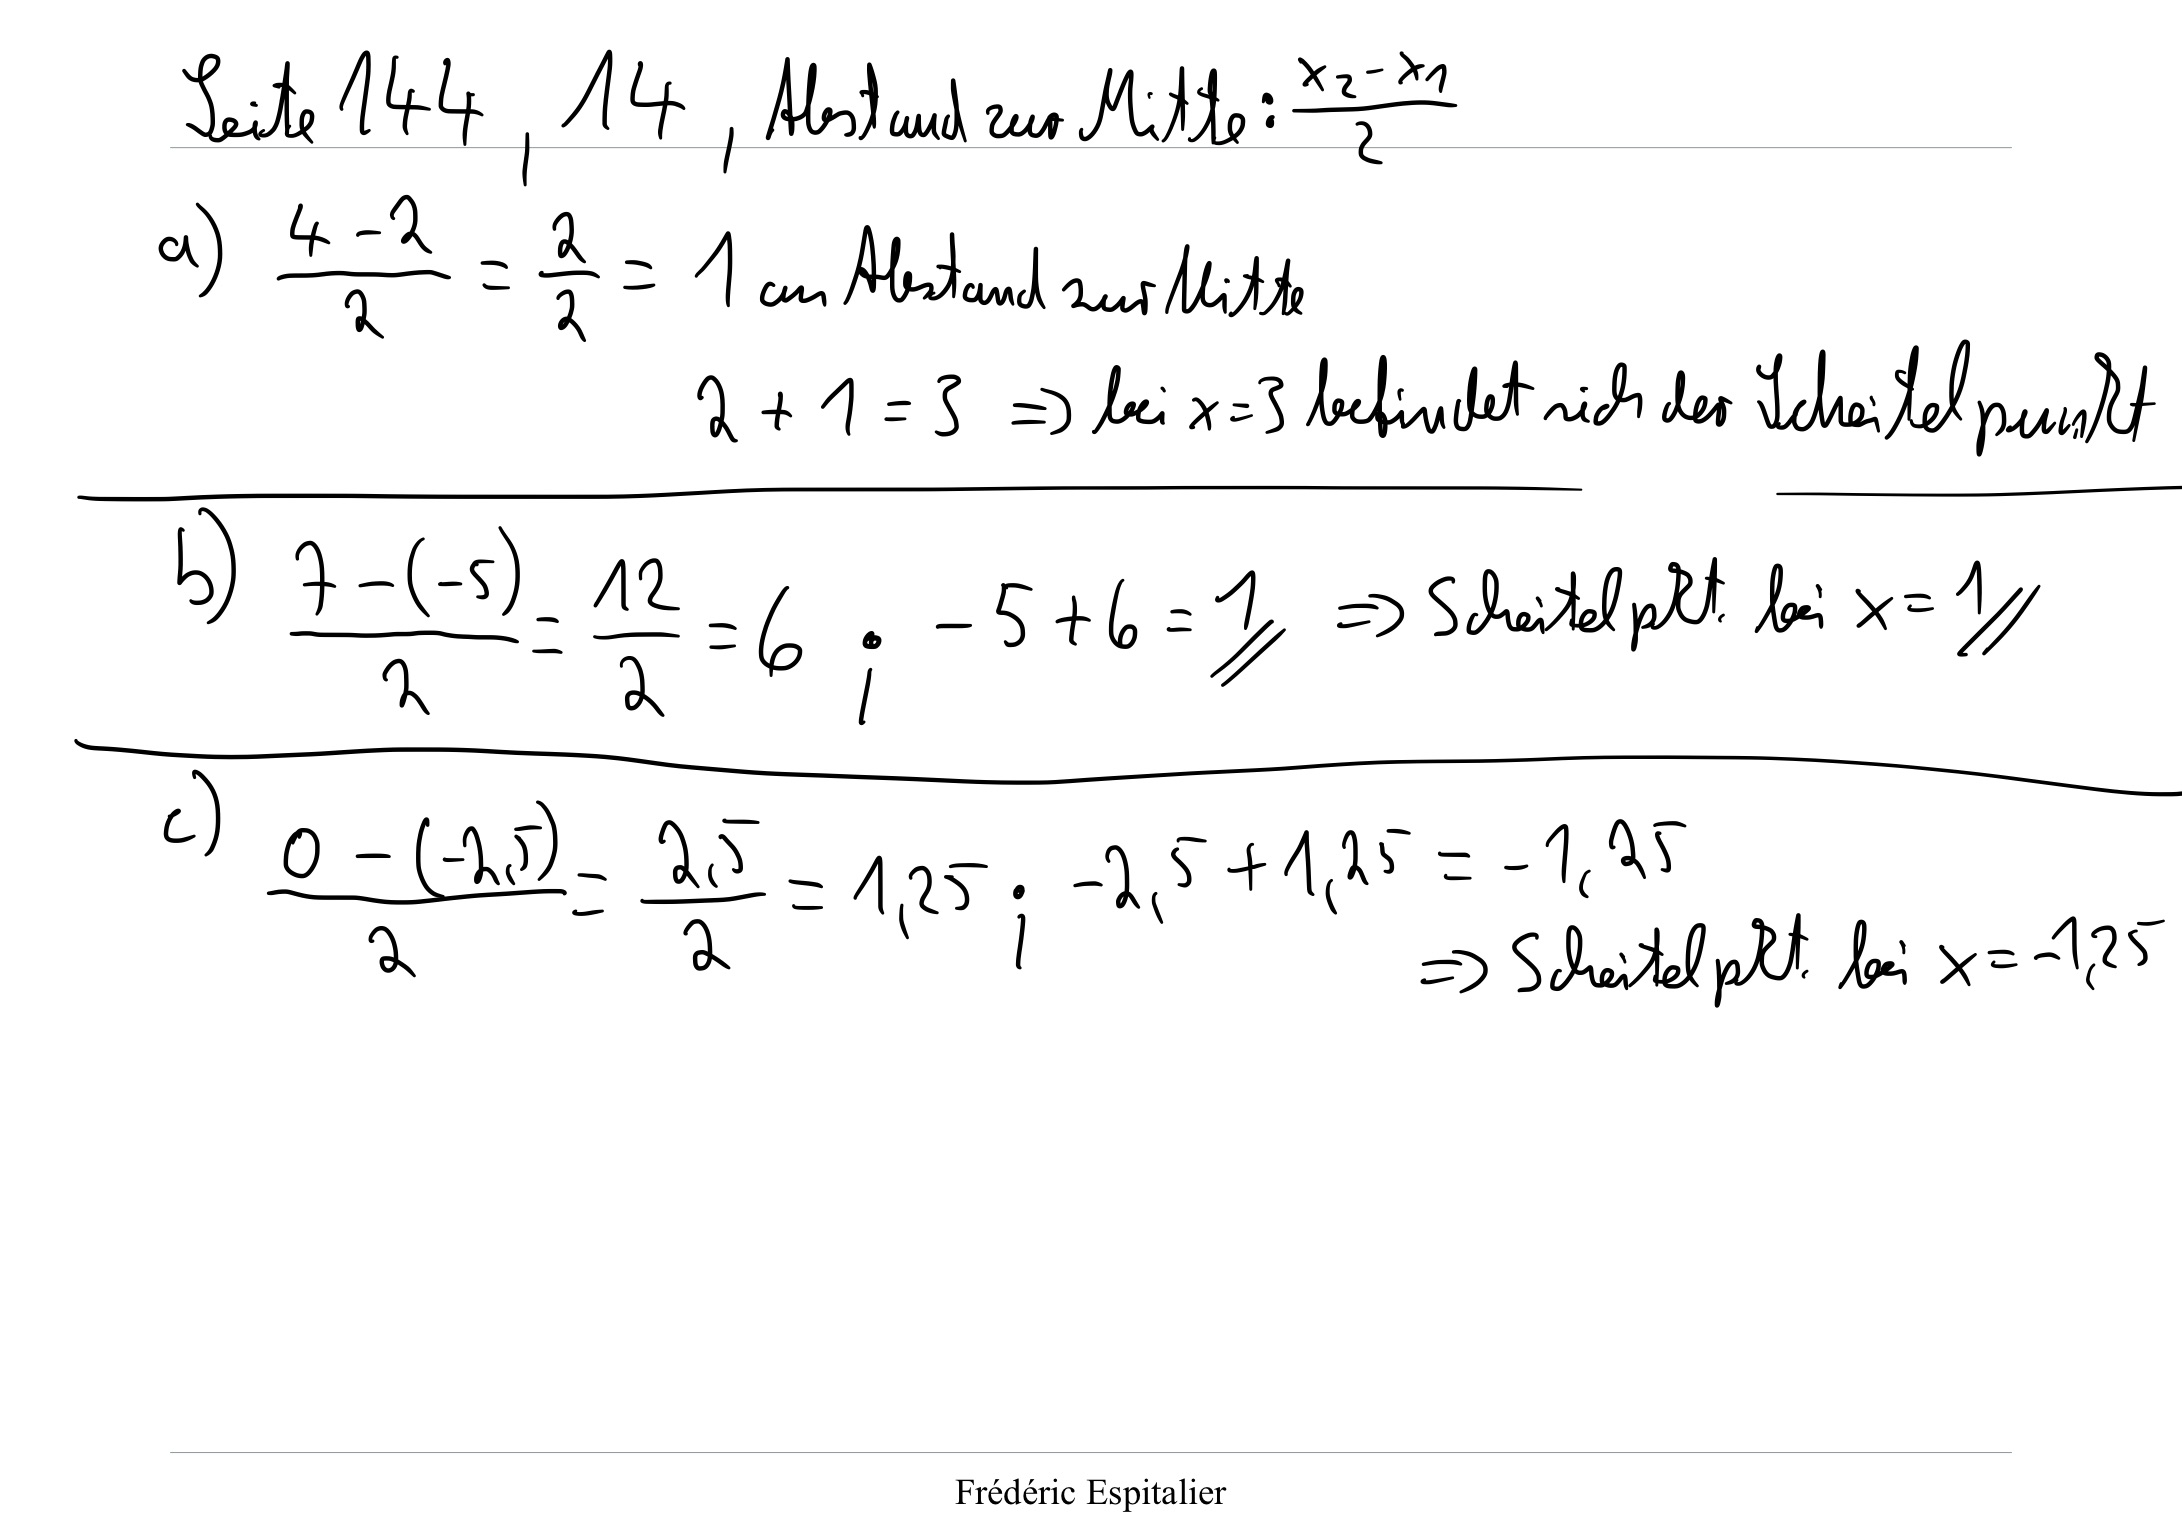 Seite 144, 14, Abstand zur Mitte: (x₂-x₁)/2
a) (4-2)/2 = 2/2 = 1 cm Abstand zur Mitte
2 + 1 = 3 ⇒ bei x=3 befindet sich der Scheitelpunkt
b) (7-(-5))/2 = 12/2 = 6 ; -5+6 = 1 ⇒ Scheitelpkt. bei x=1
c) (0-(-2,5))/2 = 2,5/2 = 1,25 ; -2,5+1,25 = -1,25
⇒ Scheitelpkt. bei x=-1,25
Frédéric Espitalier